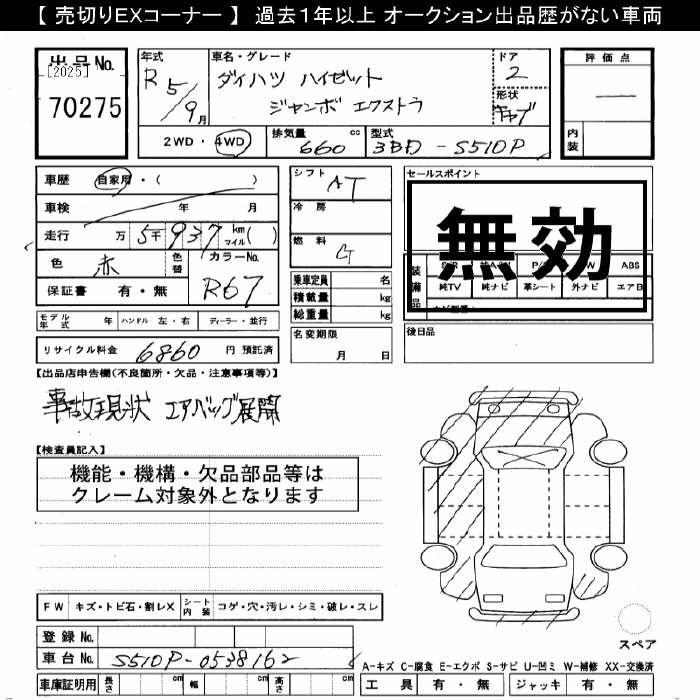 【 売切りEXコーナー 】 過去1年以上 オークション出品歴がない車両
出品No.
[2025]
70275
年式
R 5/9月
車名・グレード
ダイハツ ハイゼット
ジャンボ エクストラ
ドア
2
形状
キャブ
評価点
―
内装
2WD・4WD
排気量 660 cc
型式 3BD-S510P
車歴 自家用・( )
車検 年 月
走行 万 5千937 km マイル( )
色 赤 色替 カラーNo. R67
保証書 有・無
シフト AT
冷房
燃料 G
乗車定員 名
積載量 kg
総重量 kg
セールスポイント
無効
装備品
ABS
純TV 純ナビ 革シート 外ナビ エアB
モデル年式 年 ハンドル 左・右 ディーラー・並行
リサイクル料金 6860 円 預託済
名変期限 月 日
後日品
【出品店申告欄(不良箇所・欠品・注意事項等)】
事故現状 エアバッグ展開
【検査員記入】
機能・機構・欠品部品等は
クレーム対象外となります
FW キズ・トビ石・割レX シート内装 コゲ・穴・汚レ・シミ・破レ・スレ
登録 No.
車台 No. S510P-0538162
車庫証明用 長さ cm 幅 cm 高さ cm
スペア
A-キズ C-腐食 E-エクボ S-サビ U-凹ミ W-補修 XX-交換済
工具 有・無 ジャッキ 有・無